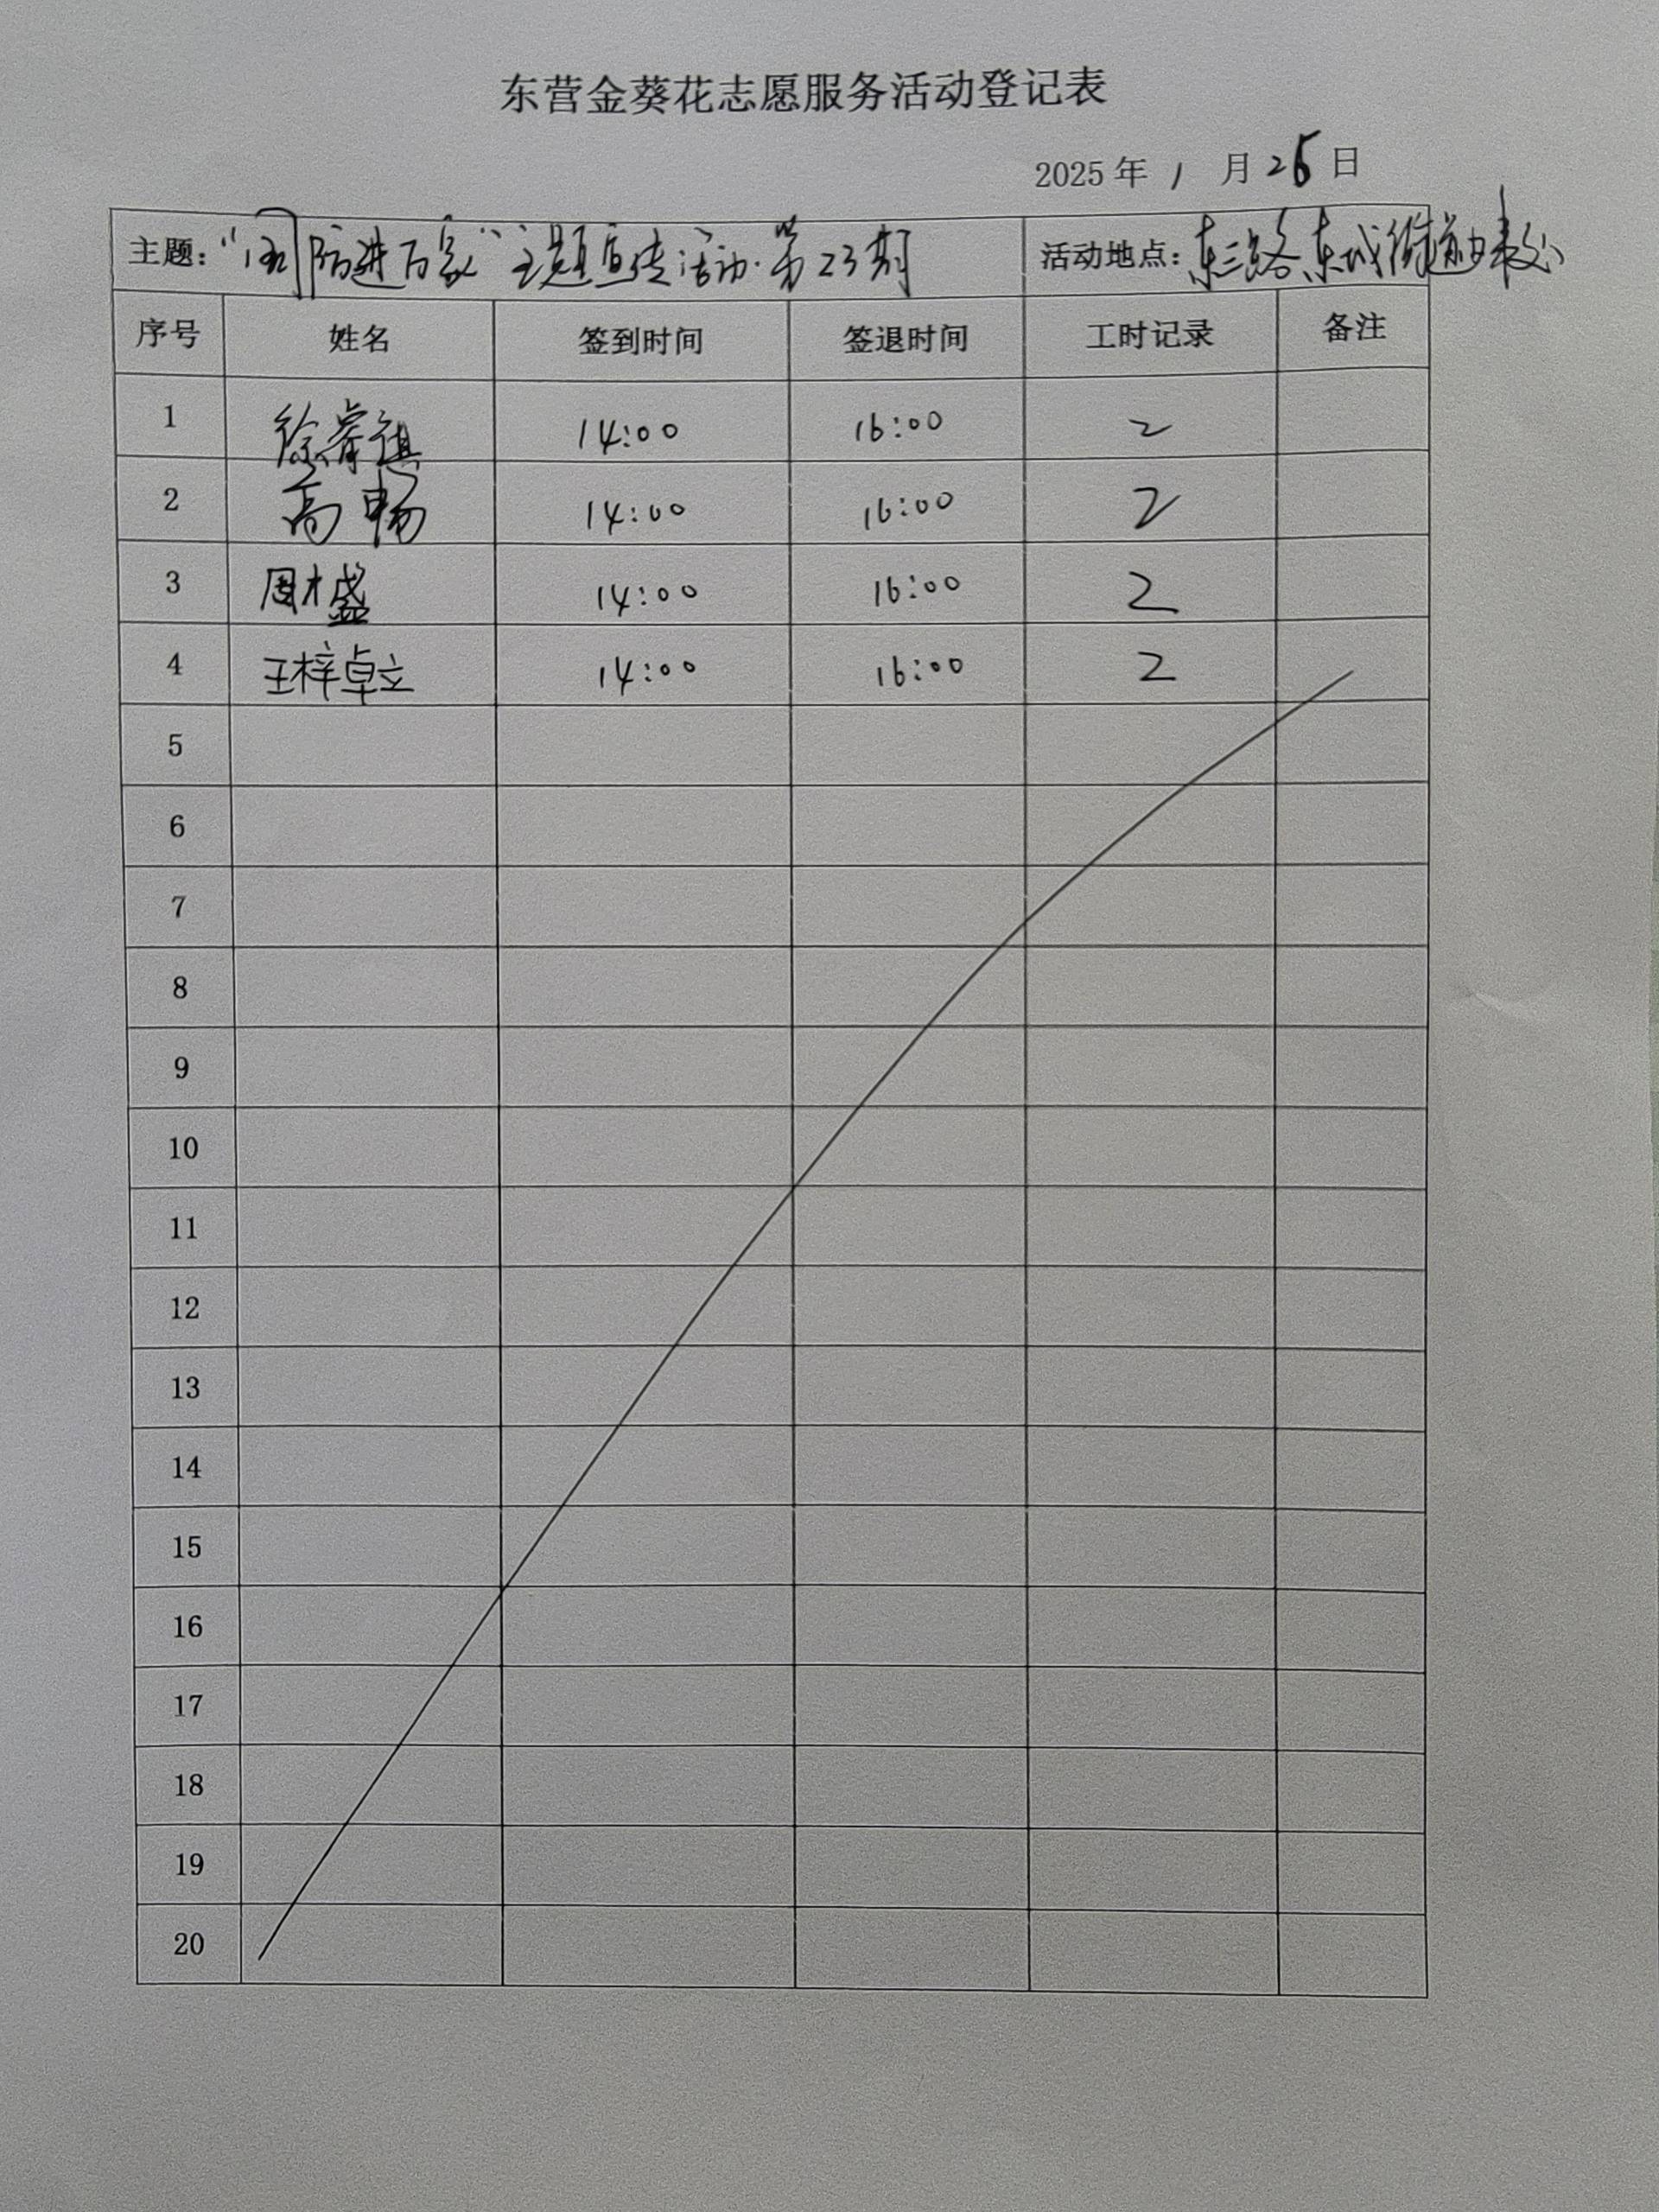 东营金葵花志愿服务活动登记表
2025 年 1 月 26 日
主题:“国防进百家”主题宣传活动·第23期 活动地点:东三路东城街道
序号 姓名 签到时间 签退时间 工时记录 备注
1 徐睿祺 14:00 16:00 2
2 高畅 14:00 16:00 2
3 周才盛 14:00 16:00 2
4 王梓卓立 14:00 16:00 2
5
6
7
8
9
10
11
12
13
14
15
16
17
18
19
20